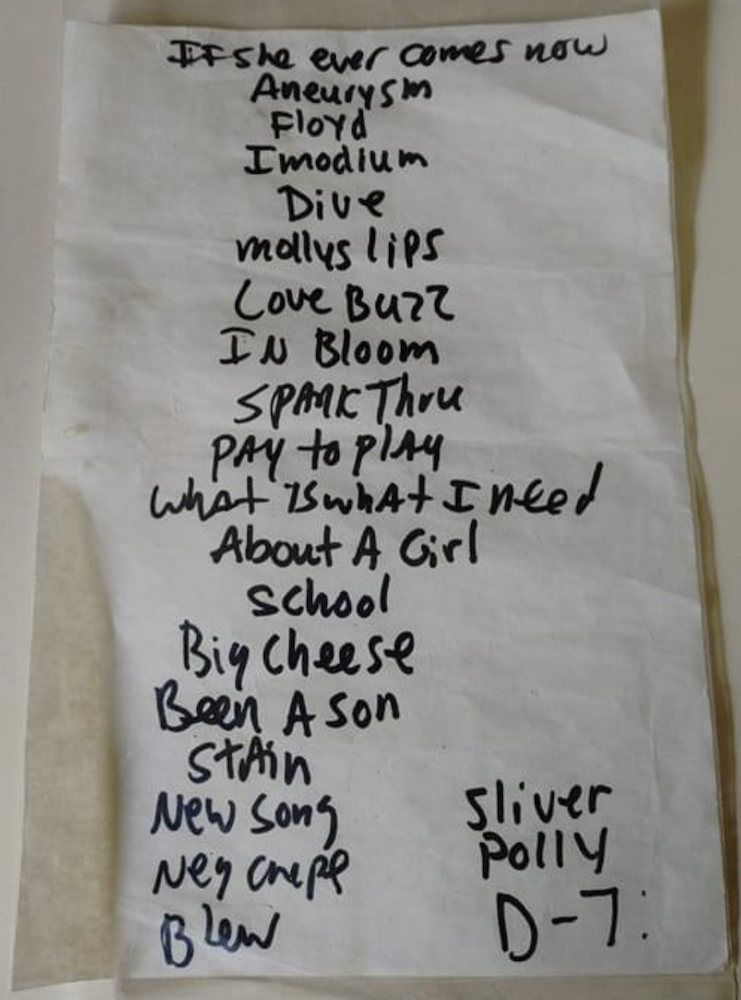 If she ever comes now
Aneurysm
Floyd
Imodium
Dive
mollys lips
Love Buzz
IN Bloom
SPANK Thru
PAY to PlAY
what is whAt I need
About A Girl
School
Big Cheese
Been A son
StAin
New song
Neg creepe
Blew
Sliver
Polly
D-7: